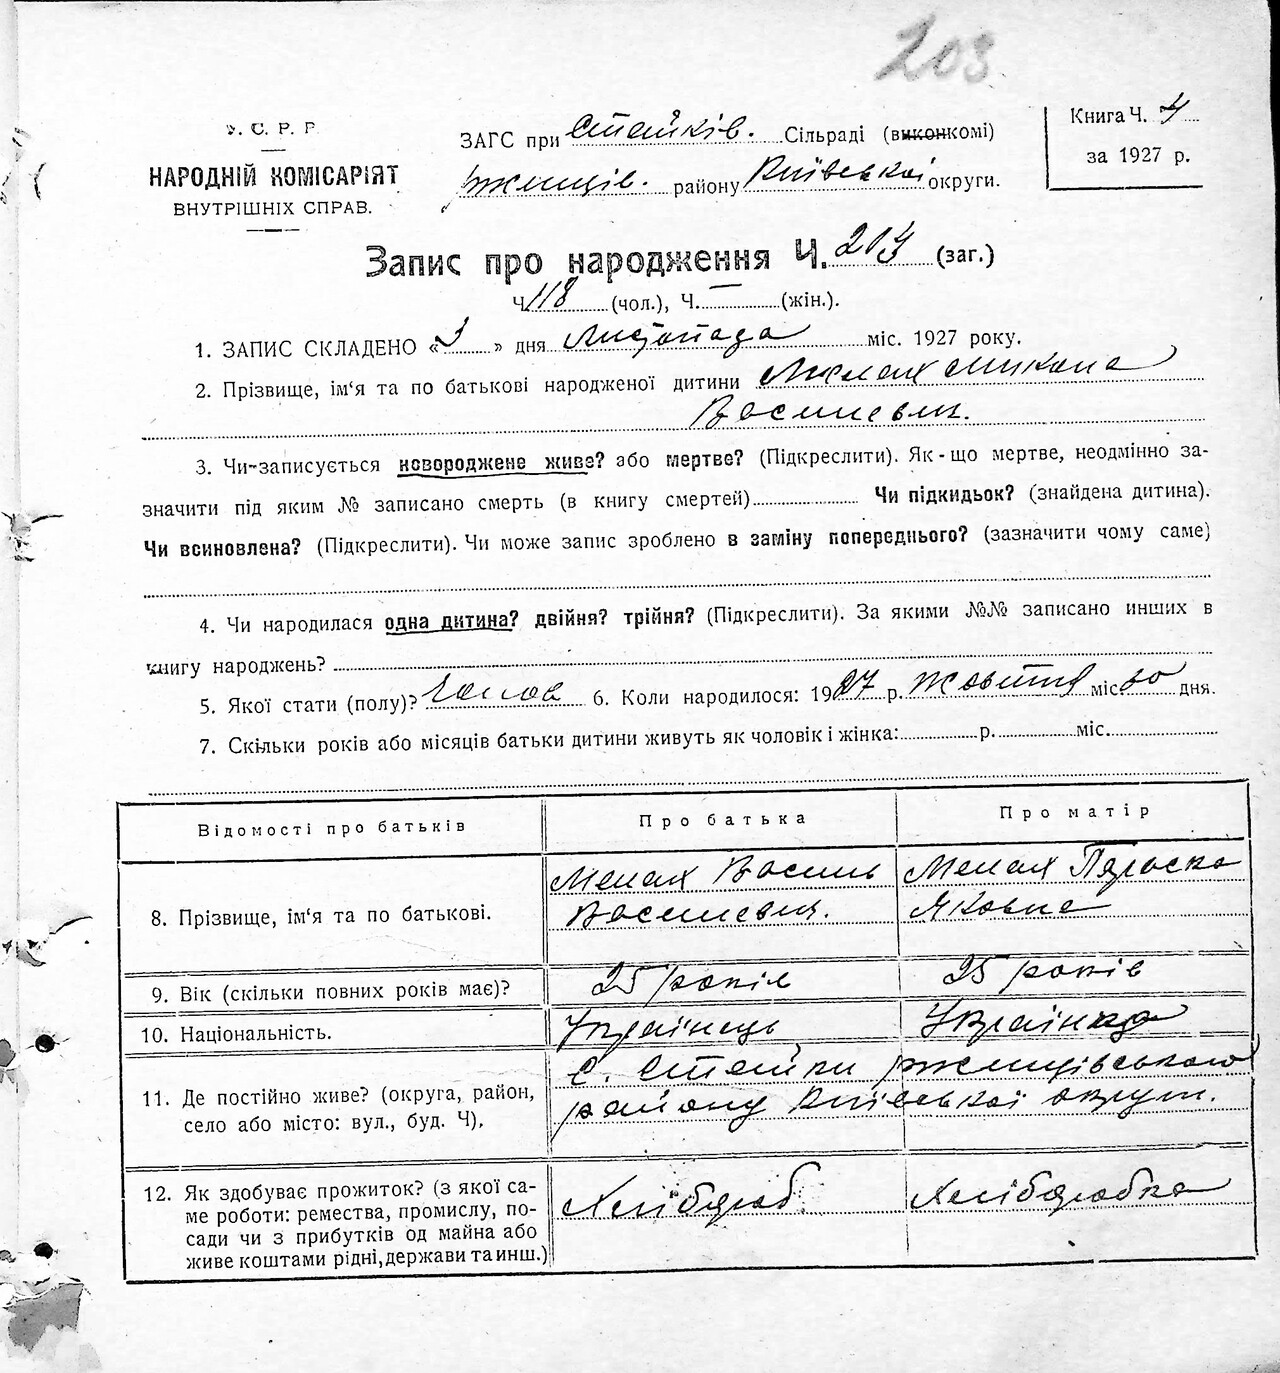 203
У. С. Р. Р.
НАРОДНІЙ КОМІСАРІЯТ
ВНУТРІШНІХ СПРАВ.
ЗАГС при Стайків. Сільраді (виконкомі)
Ржищів. району Київської округи.
Книга Ч. 4
за 1927 р.
Запис про народження Ч. 214 (заг.)
Ч. 118 (чол.), Ч. — (жін.).
1. ЗАПИС СКЛАДЕНО «3» дня Листопада міс. 1927 року.
2. Прізвище, ім'я та по батькові народженої дитини Мелах Микола
Васильевич.
3. Чи-записується новороджене живе? або мертве? (Підкреслити). Як-що мертве, неодмінно за-
значити під яким № записано смерть (в книгу смертей) Чи підкидьок? (знайдена дитина).
Чи всиновлена? (Підкреслити). Чи може запис зроблено в заміну попереднього? (зазначити чому саме)
4. Чи народилася одна дитина? двійня? трійня? (Підкреслити). За якими №№ записано инших в
книгу народжень?
5. Якої стати (полу)? Чолов 6. Коли народилося: 1927 р. Жовтня міс 30 дня.
7. Скільки років або місяців батьки дитини живуть як чоловік і жінка: р. міс.
Відомості про батьків Про батька Про матір
8. Прізвище, ім'я та по батькові. Мелах Василь Васильевич. Мелах Параска Яковна
9. Вік (скільки повних років має)? 25 років 25 років
10. Національність. Українець Українка
11. Де постійно живе? (округа, район, с. Стайки Ржищівського
село або місто: вул., буд. Ч), району Київської округи.
12. Як здобуває прожиток? (з якої са- Хлібороб Хліборобка
ме роботи: ремества, промислу, по-
сади чи з прибутків од майна або
живе коштами рідні, держави та инш.)